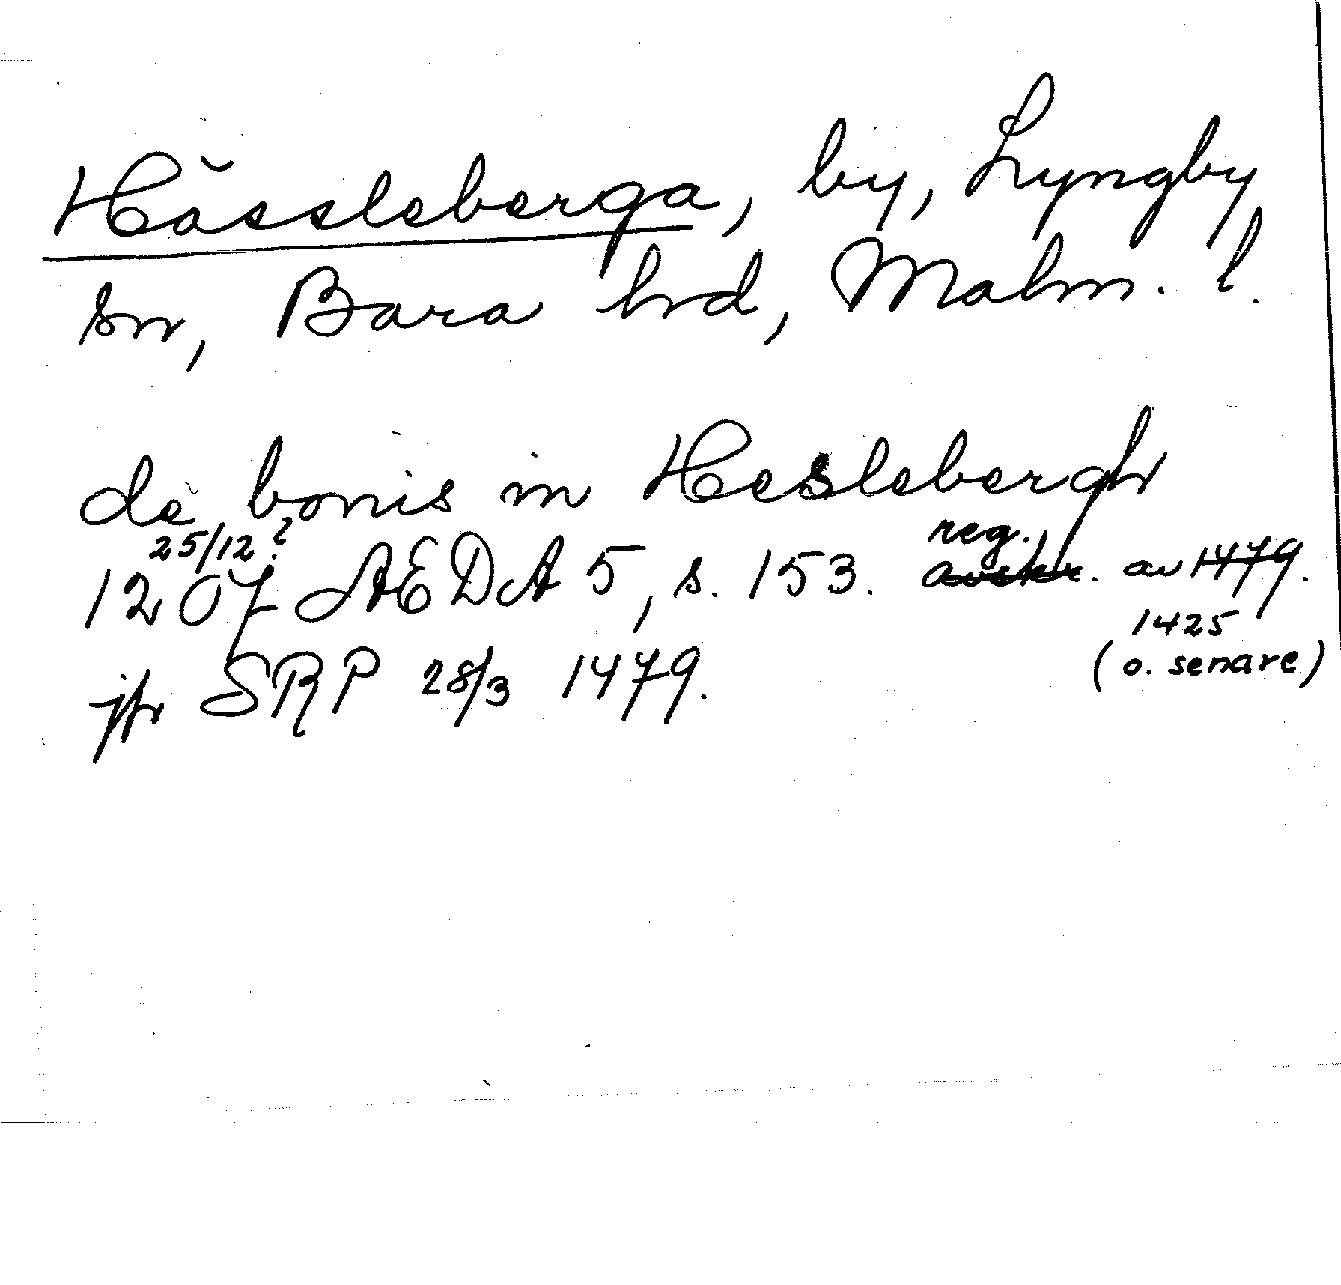 Hässleberga, by, Lyngby
sn, Bara hd, Malm. l.
de bonis in Heslebergh
25/12? reg.
1207 AEDA 5, s. 153. avskr. av 1479.
1425
jfr SRP 28/3 1479. (o. senare)